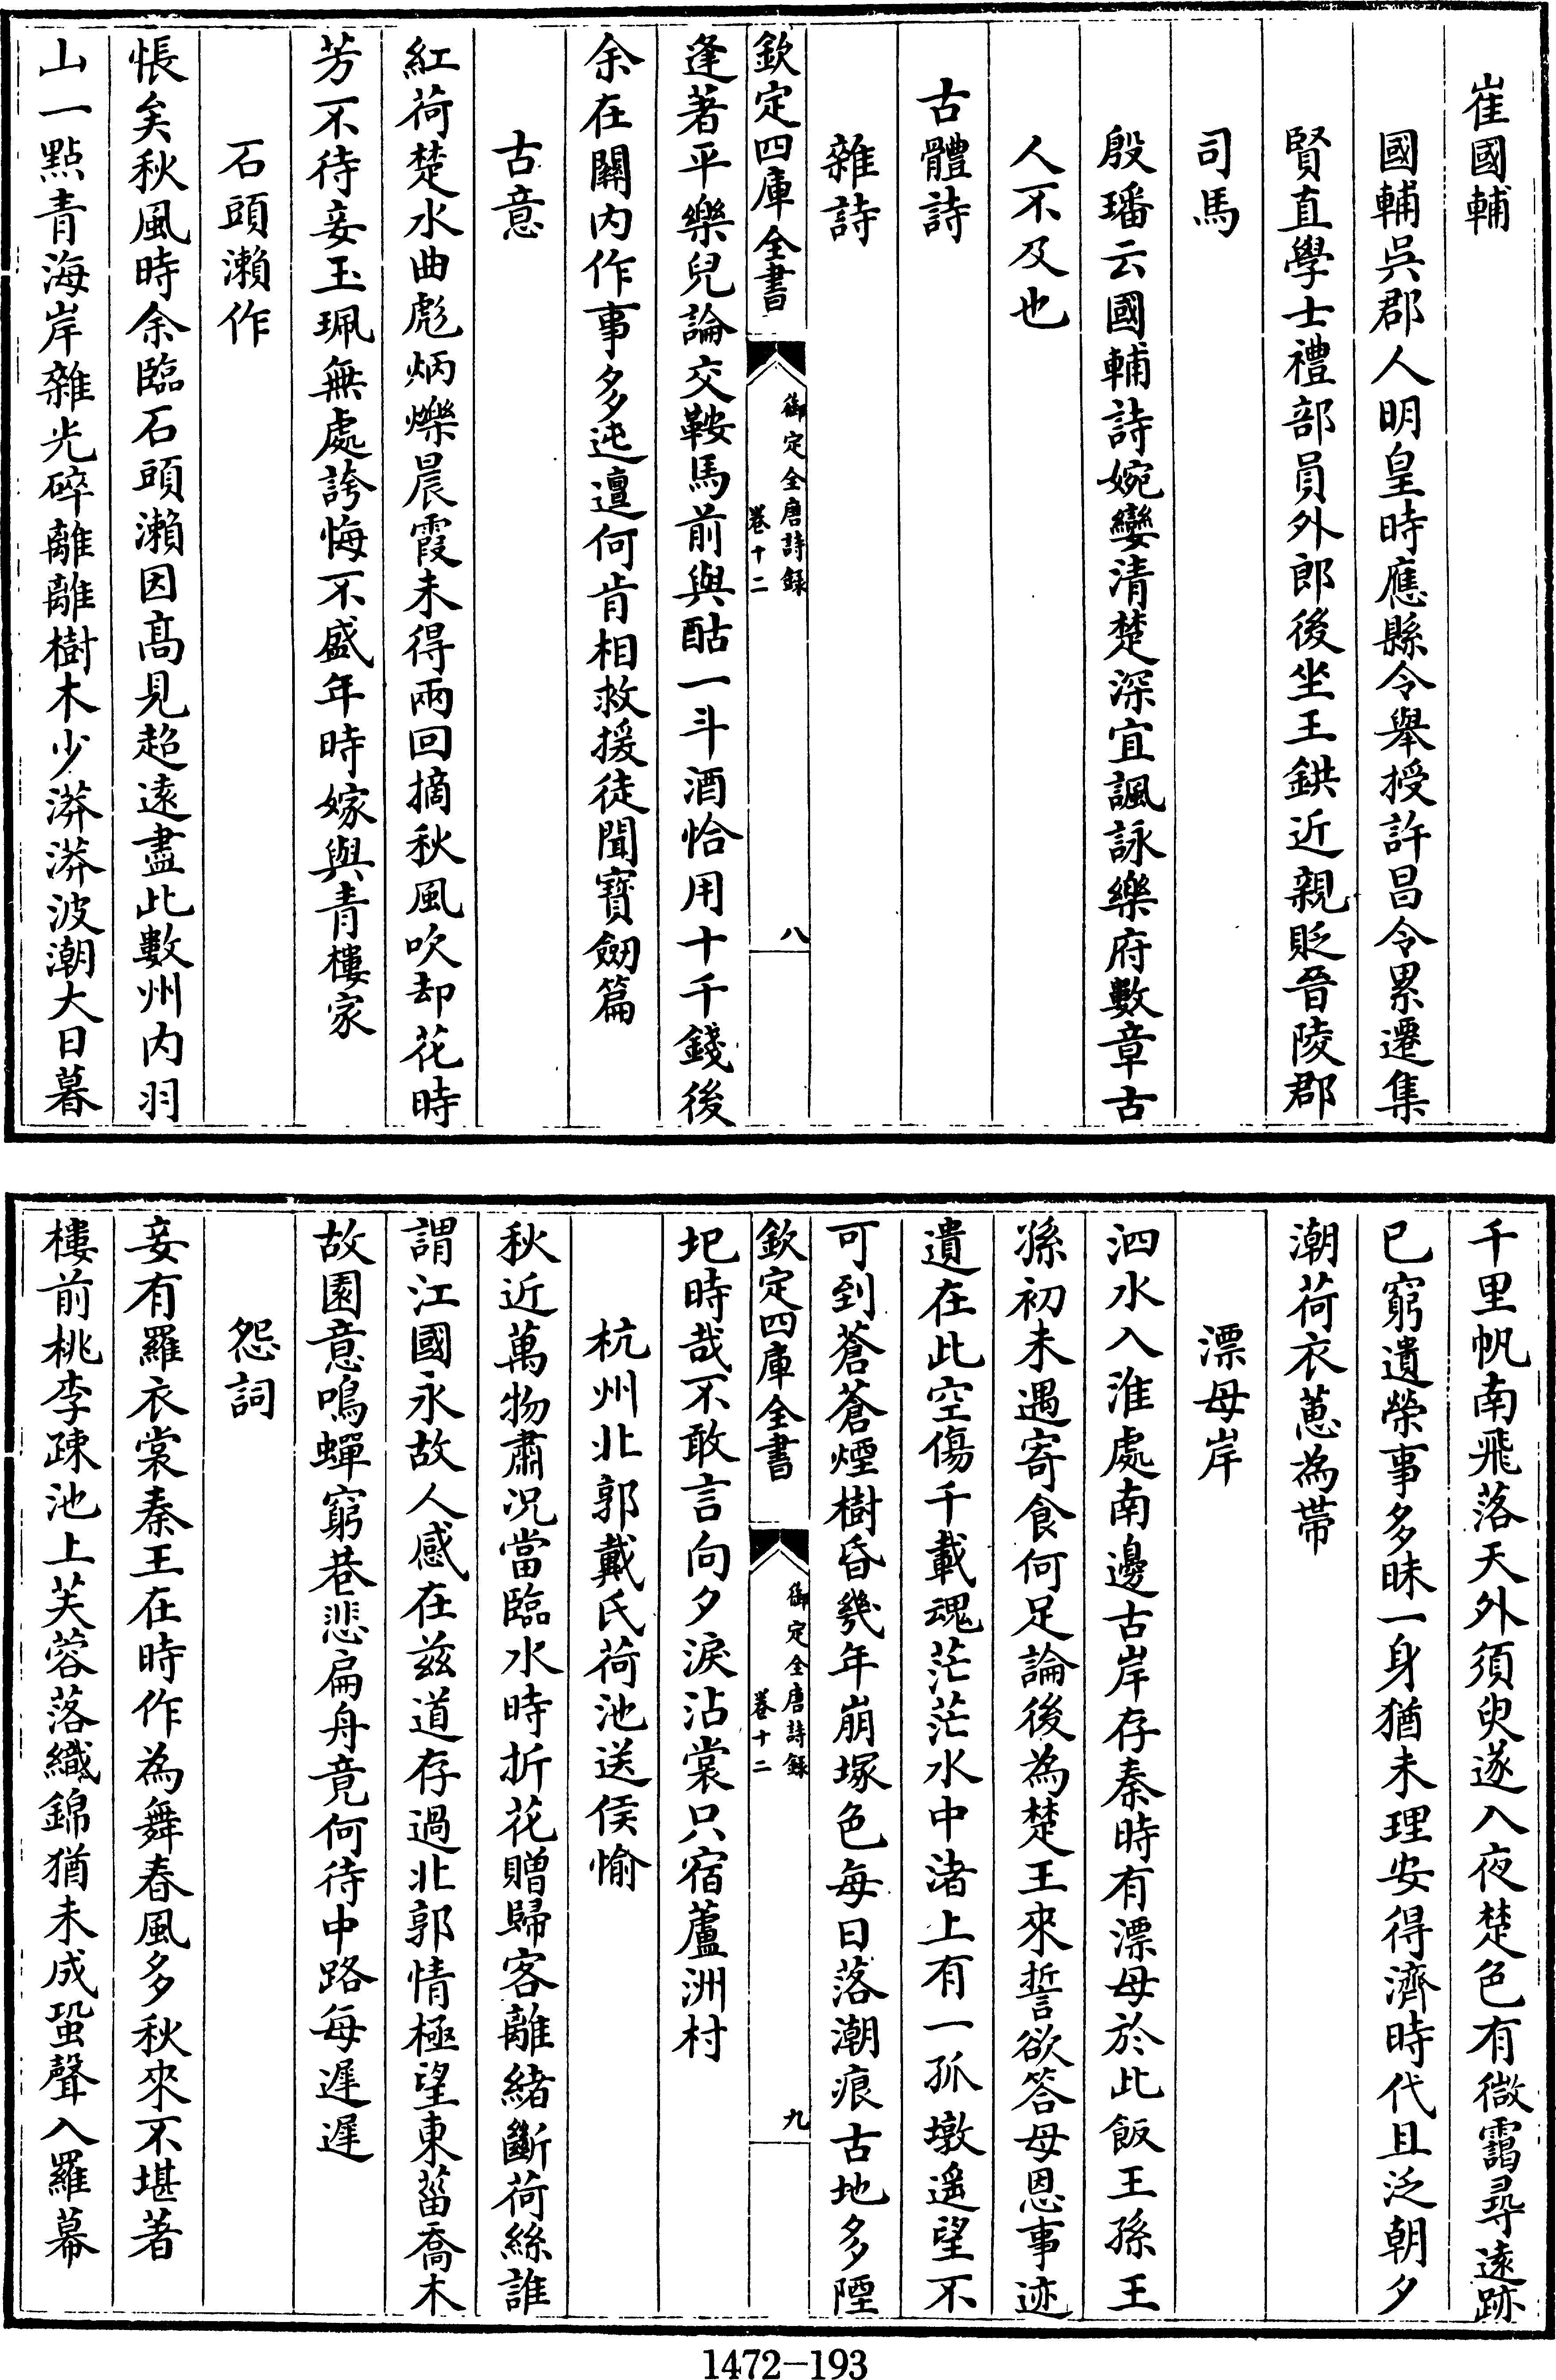 崔國輔
國輔吳郡人明皇時應縣令舉授許昌令累遷集
賢直學士禮部員外郎後坐王鉷近親貶晉陵郡
司馬
殷璠云國輔詩婉孌清楚深宜諷詠樂府數章古
人不及也
古體詩
雜詩
欽定四庫全書
御定全唐詩録
卷十二
八
逢著平樂兒論交鞍馬前與酤一斗酒恰用十千錢後
余在關内作事多迍邅何肯相救援徒聞寶劒篇
古意
紅荷楚水曲彪炳爍晨霞未得兩回摘秋風吹却花時
芳不待妾玉珮無處誇悔不盛年時嫁與青樓家
石頭瀨作
悵矣秋風時余臨石頭瀨因髙見超遠盡此數州内羽
山一點青海岸雜光碎離離樹木少漭漭波潮大日暮
千里帆南飛落天外須臾遂入夜楚色有微靄尋遠跡
已窮遺榮事多昧一身猶未理安得濟時代且泛朝夕
潮荷衣蕙為帶
漂母岸
泗水入淮處南邊古岸存秦時有漂母於此飯王孫王
孫初未遇寄食何足論後為楚王來誓欲答母恩事迹
遺在此空傷千載魂茫茫水中渚上有一孤墩遥望不
可到蒼蒼煙樹昏幾年崩塚色每日落潮痕古地多陻
欽定四庫全書
御定全唐詩録
卷十二
九
圯時哉不敢言向夕淚沾裳只宿蘆洲村
杭州北郭戴氏荷池送侯愉
秋近萬物肅况當臨水時折花贈歸客離緒斷荷絲誰
謂江國永故人感在兹道存過北郭情極望東菑喬木
故園意鳴蟬窮巷悲扁舟竟何待中路每遲遲
怨詞
妾有羅衣裳秦王在時作為舞春風多秋來不堪著
樓前桃李疎池上芙蓉落織錦猶未成蛩聲入羅幕
1472-193